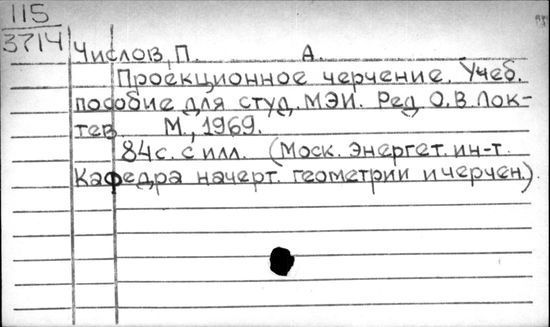 115
3714
Числов, П. А.
Проекционное черчение. Учеб.
пособие для студ. МЭИ. Ред. О.В. Лок-
тев М., 1969.
84 с. с илл. (Моск. энергет. ин-т.
Кафедра начерт. геометрии и черчен.).